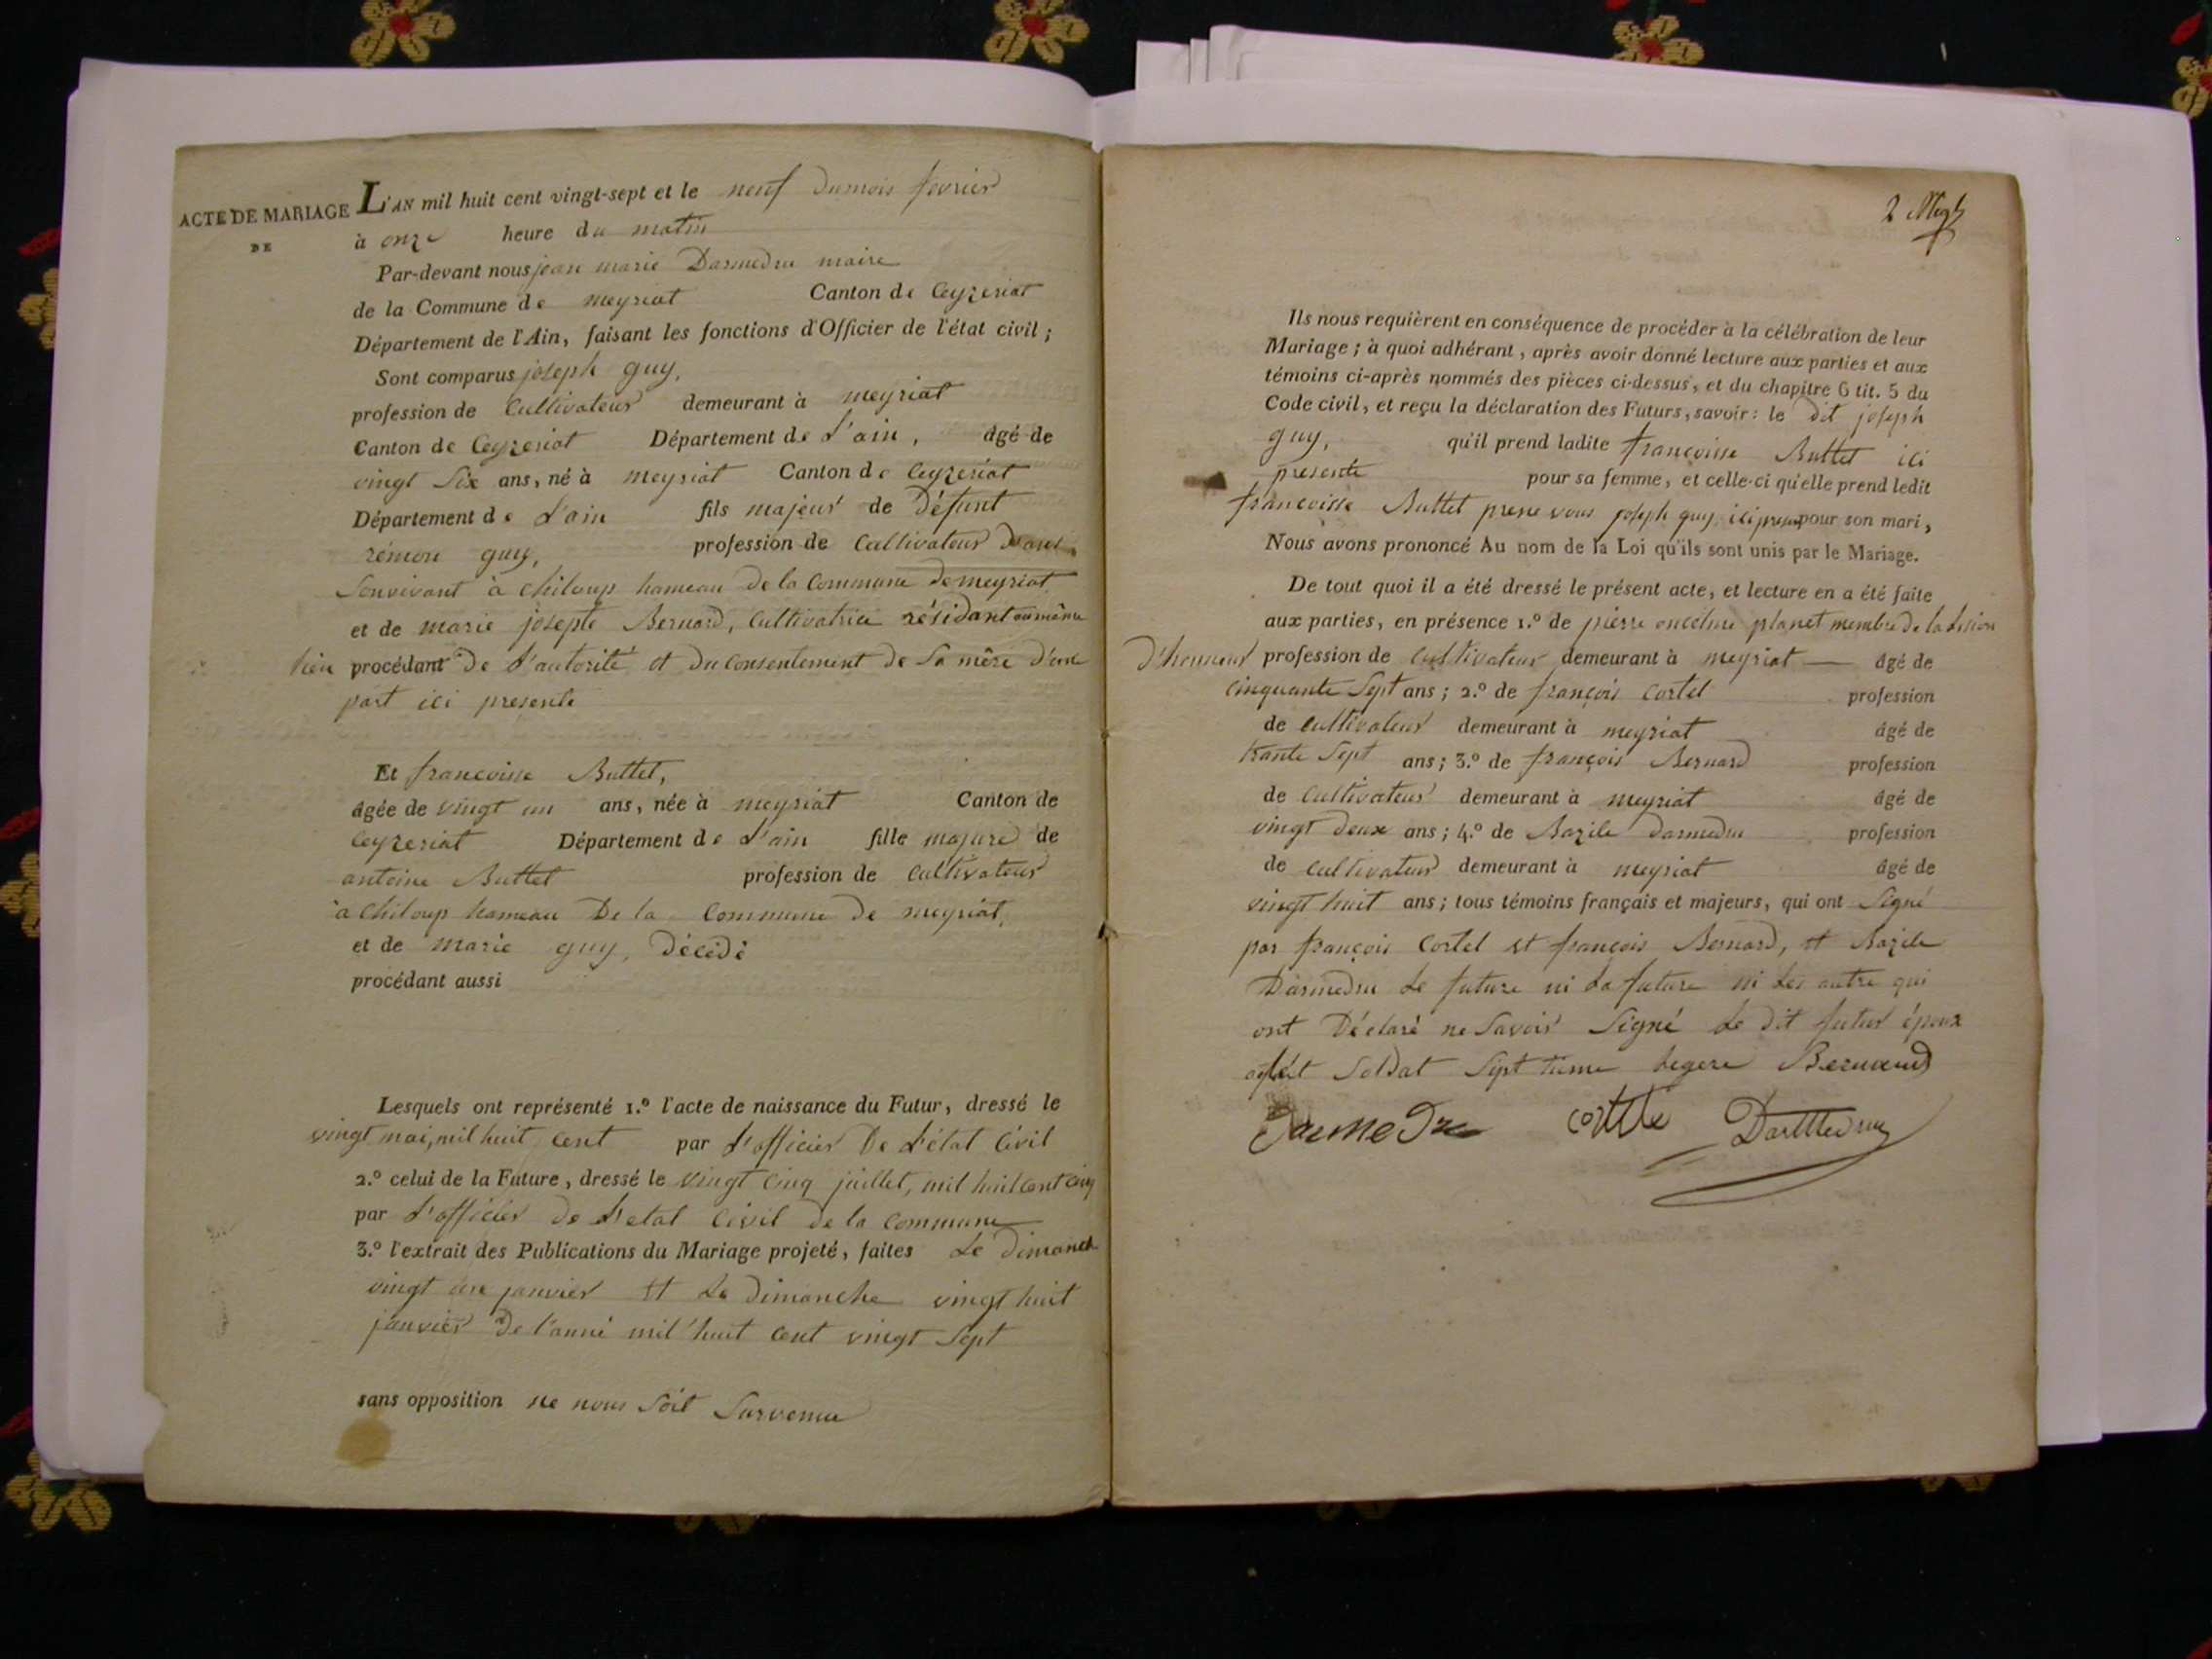 ACTE DE MARIAGE
DE
L'AN mil huit cent vingt-sept et le neuf dumois fevrier
à onze heure du matin
Par-devant nous jean marie Darmedru maire
de la Commune de meyriat Canton de Ceyzeriat
Département de l'Ain, faisant les fonctions d'Officier de l'état civil ;
Sont comparus joseph guy,
profession de Cultivateur demeurant à meyriat
Canton de Ceyzeriat Département de L'ain, âgé de
vingt Six ans, né à meyriat Canton de Ceyzeriat
Département de L'ain fils majeur de Défunt
rémon guy, profession de Cultivateur
Sonvivant à Chiloup hameau De la Commune de meyriat
et de marie josepte Bernard, Cultivatrice résidant au même
lieu procédant De L'autorité et du Consentement de Sa mère d'une
part ici presente
Et francoisse Buttet,
âgée de vingt un ans, née à meyriat Canton de
Ceyzeriat Département de L'ain fille majure de
antoine Buttet profession de Cultivateur
à Chiloup hameau De la Commune de meyriat,
et de marie guy, Décédé
procédant aussi
Lesquels ont représenté 1.º l'acte de naissance du Futur, dressé le
vingt mai, mil huit Cent par L'officier De L'état Civil
2.º celui de la Future, dressé le vingt Cinq juillet, mil huit Cent Cinq
par L'officier de L'etat Civil de la Commune
3.º l'extrait des Publications du Mariage projeté, faites Le Dimanch
vingt une janvier et Le Dimanche vingt huit
janvier De l'anné mil huit Cent vingt Sept
sans opposition ne nous Soit Survenue
2
Ils nous requièrent en conséquence de procéder à la célébration de leur
Mariage ; à quoi adhérant, après avoir donné lecture aux parties et aux
témoins ci-après nommés des pièces ci-dessus, et du chapitre 6 tit. 5 du
Code civil, et reçu la déclaration des Futurs, savoir : le Dit joseph
guy, qu'il prend ladite francoisse Buttet ici
presente pour sa femme, et celle-ci qu'elle prend ledit
francoisse Buttet prene vous joseph guy, ici pour son mari,
Nous avons prononcé Au nom de la Loi qu'ils sont unis par le Mariage.
De tout quoi il a été dressé le présent acte, et lecture en a été faite
aux parties, en présence 1.º de pierre planet membre de la
D'honneur profession de Cultivateur demeurant à meyriat — âgé de
Cinquante Sept ans ; 2.º de françois Cortel profession
de Cultivateur demeurant à meyriat âgé de
trante Sept ans ; 3.º de françois Bernard profession
de Cultivateur demeurant à meyriat âgé de
vingt deux ans ; 4.º de Bazile Darmedru profession
de Cultivateur demeurant à meyriat âgé de
vingt huit ans ; tous témoins français et majeurs, qui ont Signé
par françois Cortel et françois Bernard, et Bazile
Darmedru Le future ni La future ni Les autre qui
ont Déclaré ne Savoir Signé Le Dit futur époux
Soldat Sept legere Bernard
Darmedru Darmedru